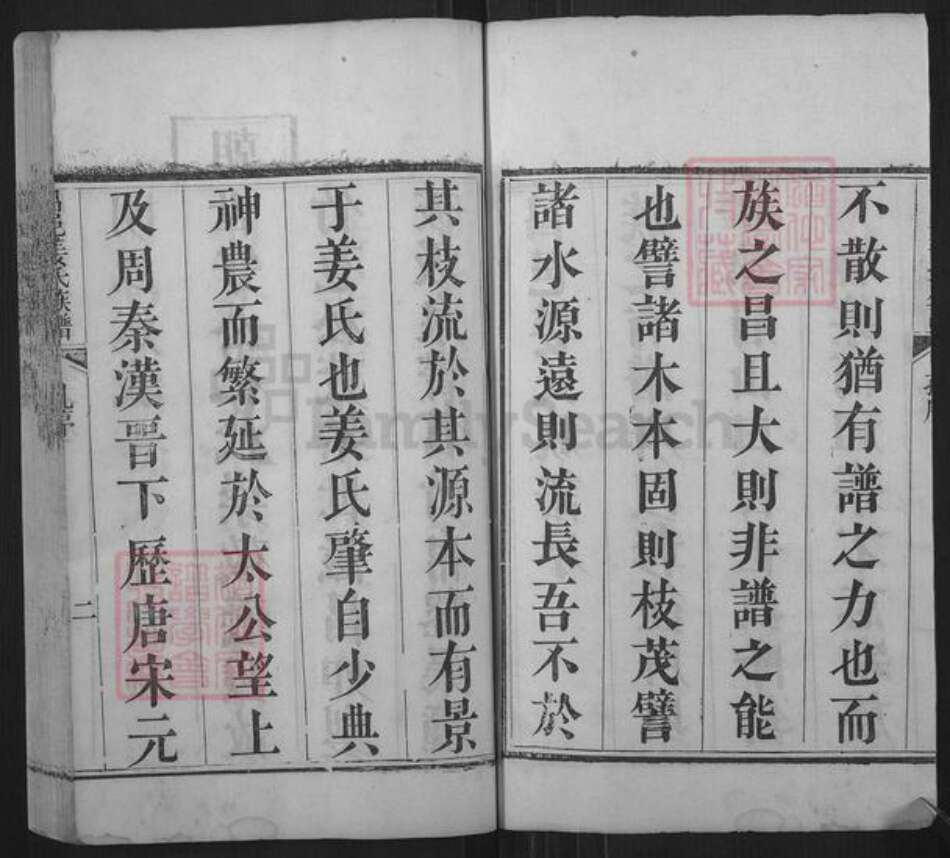 不散則猶有譜之力也而
族之昌且大則非譜之能
也譬諸木本固則枝茂譬
諸水源遠則流長吾不於
其枝流於其源本而有景
于姜氏也姜氏肇自少典
神農而繁延於太公望上
及周秦漢晉下歷唐宋元
姜氏族譜
二
FamilySearch